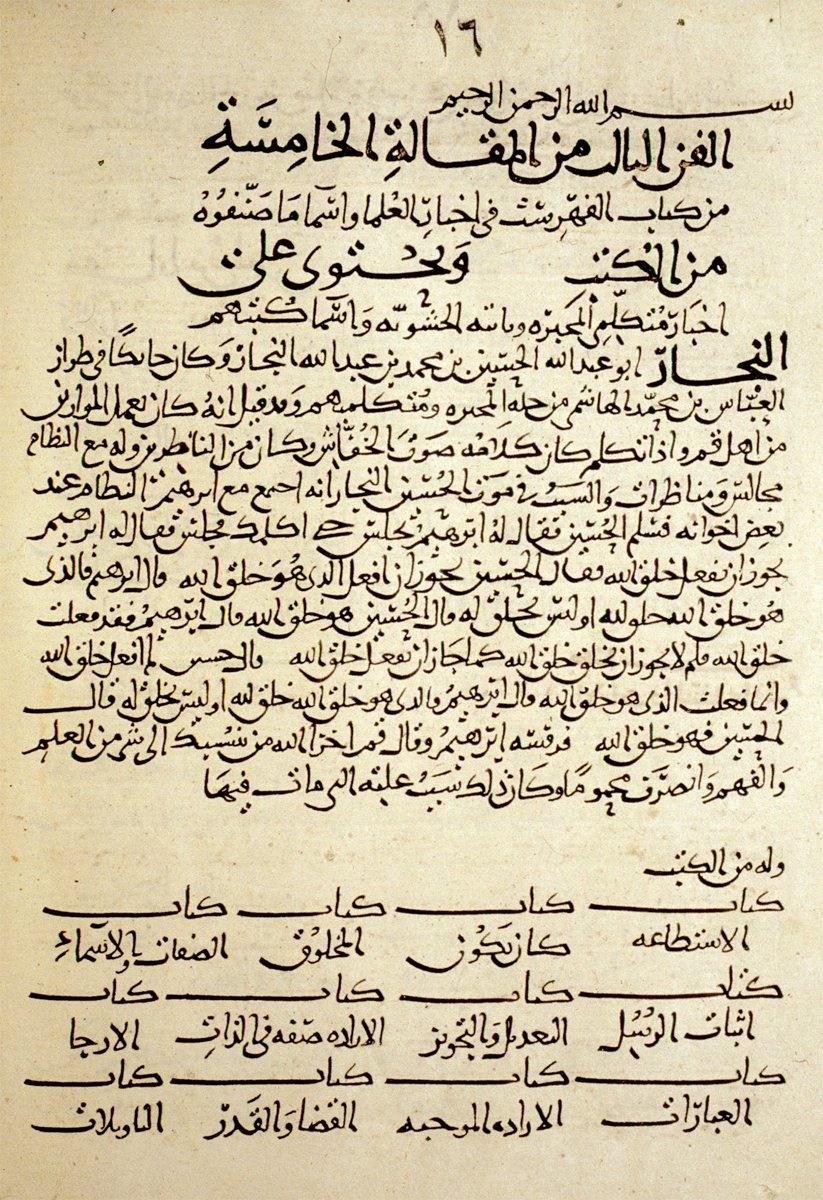 ١٦
بسم الله الرحمن الرحيم
الفن الثالث من المقالة الخامسَة
من كتاب الفهرست في اخبار العُلما واسما مَا صَنّفوُهُ
من الكتب وَيحتوى على
اخبَار مُتكلّمى المجبرَه وبابيه الحشويّه وَاسما كُتبهم
النجار ابو عبد الله الحسَين بن محمد بن عبد الله النجار وَكان حائكًا في طراز
العبّاس بن محمّد الهاشمى من جلّه المجبره ومُتكلميهم وَقد قيل انهُ كان يعمل الموازين
من اهل قم واذا تكلم كان كلامُه صَوتَ الخُفّاش وكان من الناظرين وله مع النظام
مجالسُ وَمناظرات والسبب في موت الحُسَين النجار انه اجتمع مع ابرهيم النظام عند
بعض اخوانه فسَلم الحُسَين فقال لهُ ابرهيمُ تجلس حتى اكلمك فجلس فقال له ابرهيم
يجوز ان تفعل خلق الله فقال الحسَين يجوز ان افعل الذى هُوَ خلق الله قال ابرهيم فالذى
هُو خلق الله خلق لله او ليسَ بخلق له قال الحُسَين هو خلق الله قال ابرهيمُ فقد فعلت
خلق الله فلم لا يجوز ان تخلق خلق الله كما جَاز ان تفعل خلق الله قال حسين لم افعل خلق الله
وانما فعلت الذى هو خلق الله قال ابرهيمُ والذى هو خلق الله خلق لله او ليسَ بخلق له قال
الحسَين فهو خلق الله فرفسَه ابرهيمُ وقال قم اخزا الله من ينسبك الى شى من العلم
وَالفهم وَانصَرف محمومًا وكانَ ذلك سَببُ علته التى مات فيهَا
وله من الكتب
كتاب كتاب كتاب كتاب
الاستطاعه كان يَكون المخلوُق الصفات والاسماء
كتاب كتاب كتاب كتاب
اثبات الرسُل التعديل والتجويز الاراده صفه فى الذات الارجا
كتاب كتاب كتاب كتاب
العبارات الاراده الموجبه القضا وَالقدَر التاويلات